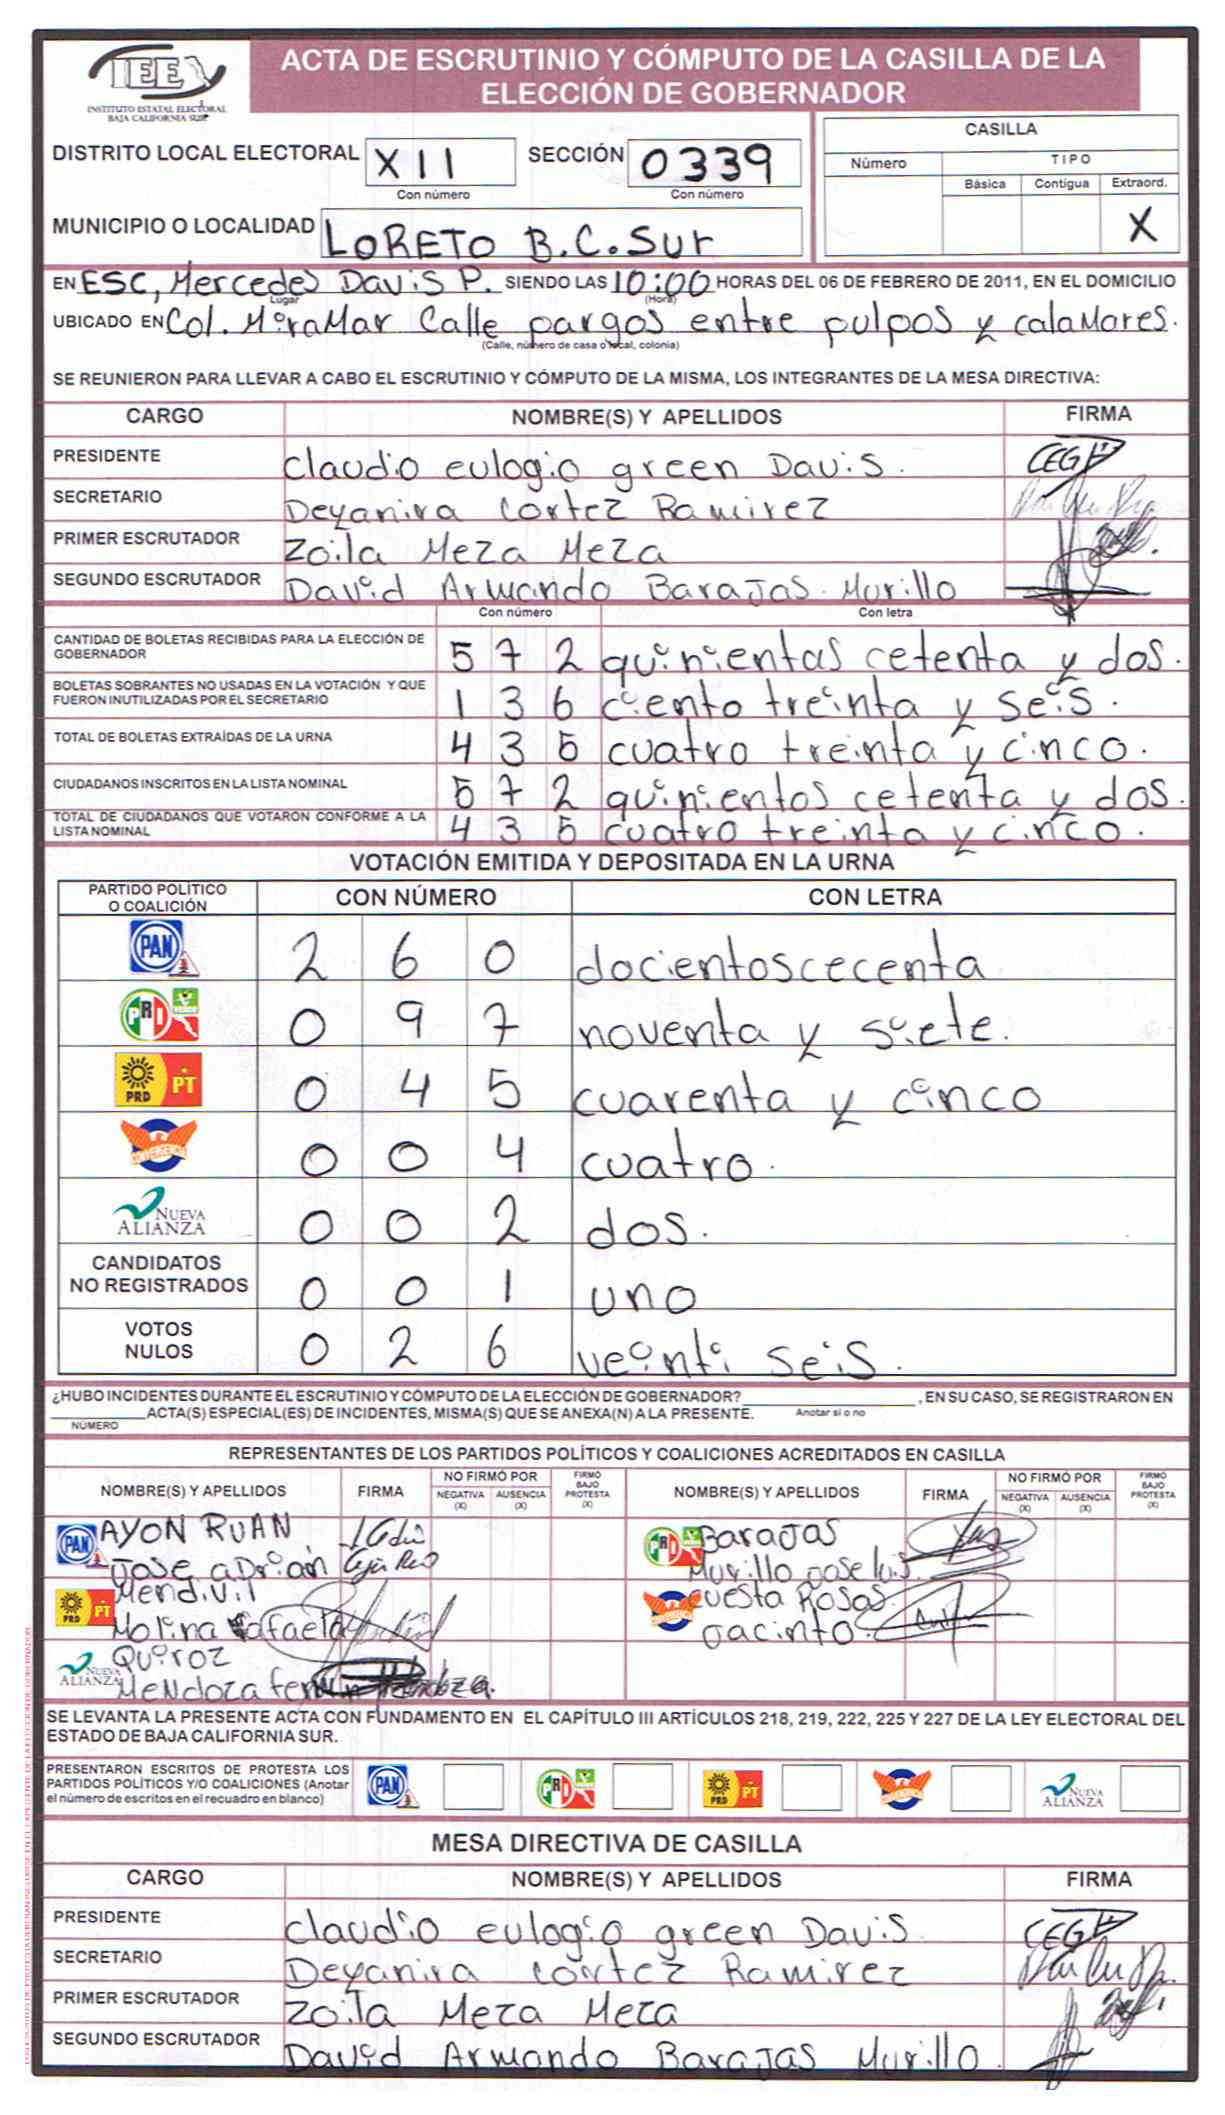 IEE
INSTITUTO ESTATAL ELECTORAL
BAJA CALIFORNIA SUR
ACTA DE ESCRUTINIO Y CÓMPUTO DE LA CASILLA DE LA
ELECCIÓN DE GOBERNADOR
DISTRITO LOCAL ELECTORAL XII SECCIÓN 0339
Con número Con número
CASILLA
Número TIPO
Básica Contigua Extraord.
X
MUNICIPIO O LOCALIDAD LORETO B.C.Sur
EN ESC, Mercedes Davis P. SIENDO LAS 10:00 HORAS DEL 06 DE FEBRERO DE 2011, EN EL DOMICILIO
Lugar (Hora)
UBICADO EN Col. MiraMar Calle pargos entre pulpos y calaMares.
(Calle, número de casa o local, colonia)
SE REUNIERON PARA LLEVAR A CABO EL ESCRUTINIO Y CÓMPUTO DE LA MISMA, LOS INTEGRANTES DE LA MESA DIRECTIVA:
CARGO NOMBRE(S) Y APELLIDOS FIRMA
PRESIDENTE Claudio eulogio green Davis. CEG
SECRETARIO Deyanira Cortez Ramirez
PRIMER ESCRUTADOR Zoila Meza Meza
SEGUNDO ESCRUTADOR David Armando Barajas Murillo
Con número Con letra
CANTIDAD DE BOLETAS RECIBIDAS PARA LA ELECCIÓN DE
GOBERNADOR 5 7 2 quinientas cetenta y dos.
BOLETAS SOBRANTES NO USADAS EN LA VOTACIÓN Y QUE
FUERON INUTILIZADAS POR EL SECRETARIO 1 3 6 ciento treinta y seis.
TOTAL DE BOLETAS EXTRAÍDAS DE LA URNA 4 3 5 cuatro treinta y cinco.
CIUDADANOS INSCRITOS EN LA LISTA NOMINAL 5 7 2 quinientos cetenta y dos.
TOTAL DE CIUDADANOS QUE VOTARON CONFORME A LA
LISTA NOMINAL 4 3 5 cuatro treinta y cinco.
VOTACIÓN EMITIDA Y DEPOSITADA EN LA URNA
PARTIDO POLÍTICO
O COALICIÓN CON NÚMERO CON LETRA
PAN 2 6 0 docientoscecenta
PRI VERDE 0 9 7 noventa y siete.
PRD PT 0 4 5 cuarenta y cinco
CONVERGENCIA 0 0 4 cuatro.
NUEVA
ALIANZA 0 0 2 dos.
CANDIDATOS
NO REGISTRADOS 0 0 1 uno
VOTOS
NULOS 0 2 6 veinti seis.
¿HUBO INCIDENTES DURANTE EL ESCRUTINIO Y CÓMPUTO DE LA ELECCIÓN DE GOBERNADOR? , EN SU CASO, SE REGISTRARON EN
ACTA(S) ESPECIAL(ES) DE INCIDENTES, MISMA(S) QUE SE ANEXA(N) A LA PRESENTE. Anotar sí o no
NÚMERO
REPRESENTANTES DE LOS PARTIDOS POLÍTICOS Y COALICIONES ACREDITADOS EN CASILLA
NOMBRE(S) Y APELLIDOS FIRMA NO FIRMÓ POR NEGATIVA (X) AUSENCIA (X) FIRMÓ BAJO PROTESTA (X) NOMBRE(S) Y APELLIDOS FIRMA NO FIRMÓ POR NEGATIVA (X) AUSENCIA (X) FIRMÓ BAJO PROTESTA (X)
PAN AYON RUAN PRI VERDE Barajas
Jose aDrian Murillo Jose luis.
PRD PT Mendivil CONVERGENCIA Cuesta Rosas
Molina Rafaela Jacinto.
NUEVA Quiroz
ALIANZA Mendoza
SE LEVANTA LA PRESENTE ACTA CON FUNDAMENTO EN EL CAPÍTULO III ARTÍCULOS 218, 219, 222, 225 Y 227 DE LA LEY ELECTORAL DEL
ESTADO DE BAJA CALIFORNIA SUR.
PRESENTARON ESCRITOS DE PROTESTA LOS
PARTIDOS POLÍTICOS Y/O COALICIONES (Anotar
el número de escritos en el recuadro en blanco) PAN PRI PRD PT CONVERGENCIA NUEVA ALIANZA
MESA DIRECTIVA DE CASILLA
CARGO NOMBRE(S) Y APELLIDOS FIRMA
PRESIDENTE Claudio eulogio green Davis. CEG
SECRETARIO Deyanira Cortez Ramirez
PRIMER ESCRUTADOR Zoila Meza Meza
SEGUNDO ESCRUTADOR David Armando Barajas Murillo.